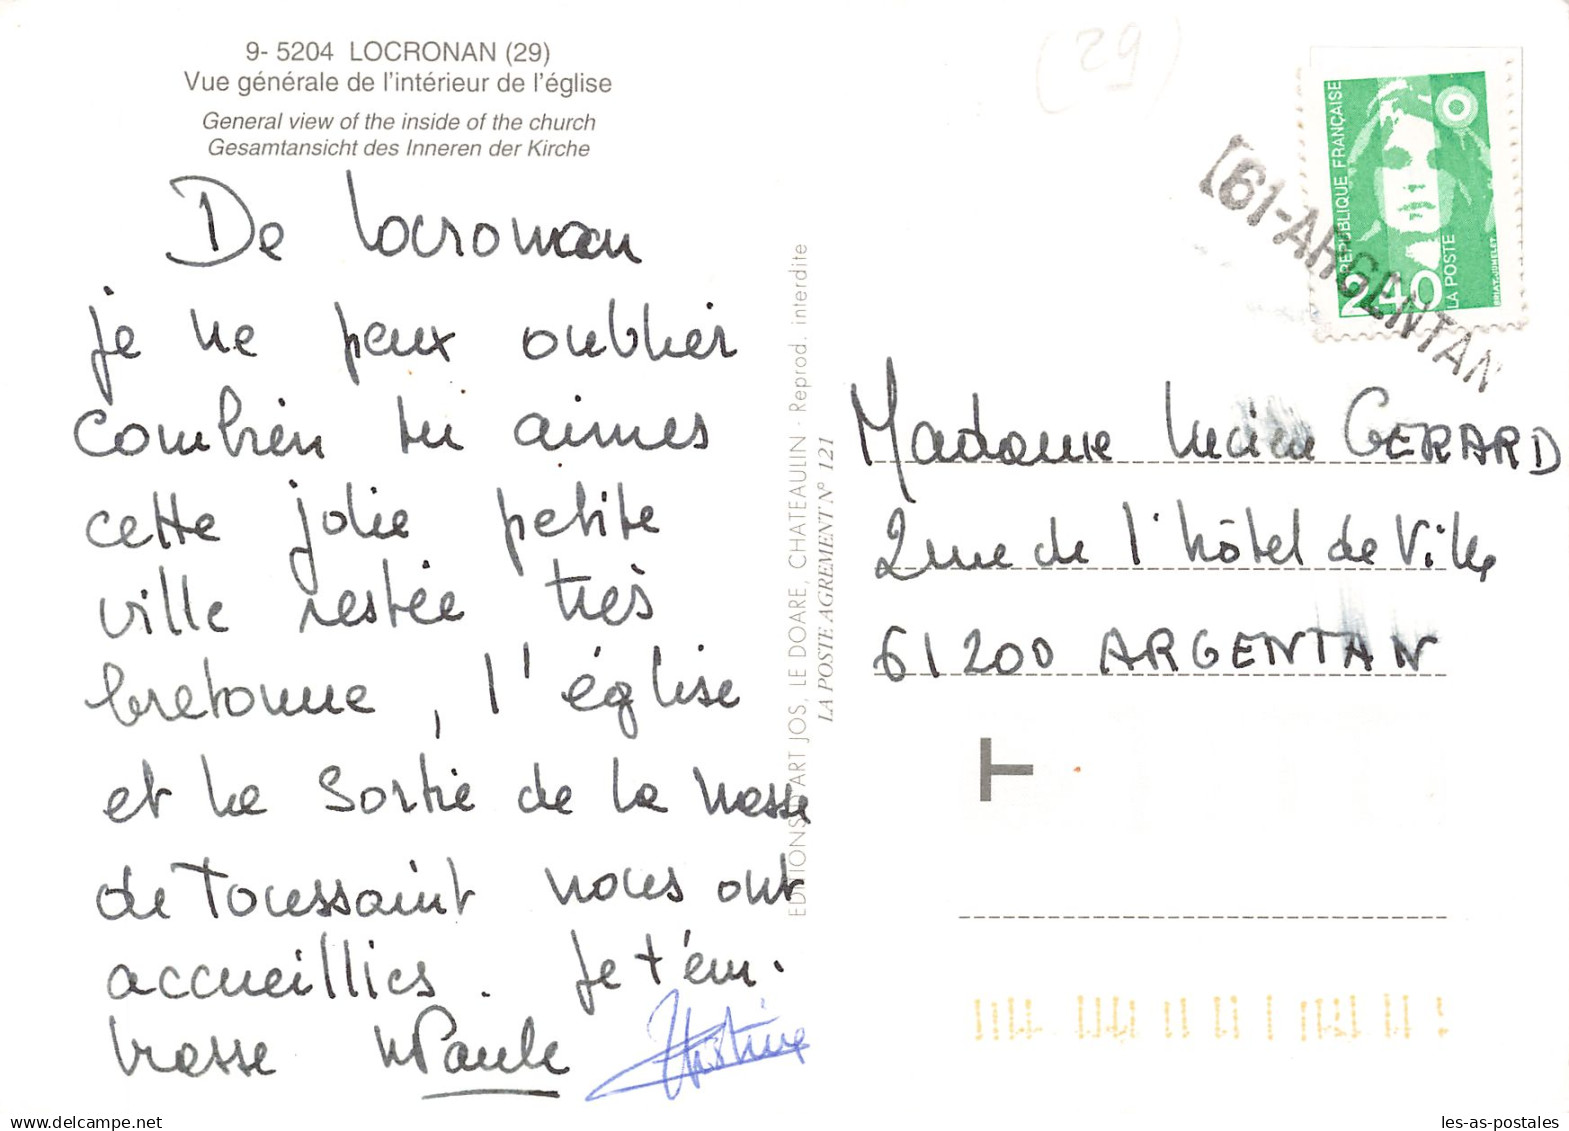 9- 5204 LOCRONAN (29)
Vue générale de l'intérieur de l'église
General view of the inside of the church
Gesamtansicht des Inneren der Kirche
De Locronan
je ne peux oublier
combien tu aimes
cette jolie petite
ville restée très
bretonne, l'église
et la sortie de la messe
de Toussaint nous ont
accueillies. Je t'em-
brasse MPaule
Christine
EDITIONS D'ART JOS, LE DOARE, CHATEAULIN - Reprod. interdite
LA POSTE AGREMENT N° 121
(29)
REPUBLIQUE FRANÇAISE
2,40
LA POSTE
BRIAT-JUMELET
[61-ARGENTAN
Madame Lucien GERARD
2 rue de l'hôtel de Ville
61200 ARGENTAN
T
les-as-postales